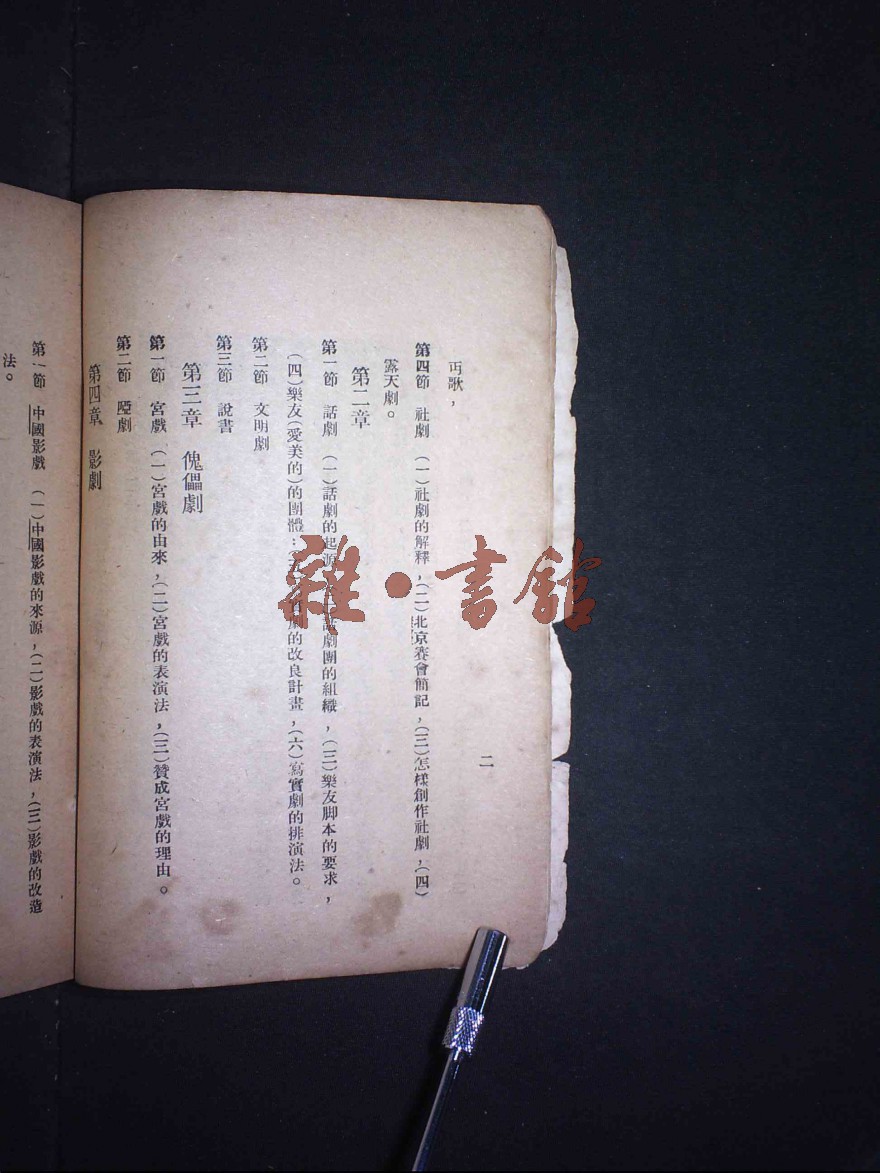 二
丐歌，
第四節　社劇　(一)社劇的解釋，(二)北京賽會簡記，(三)怎樣創作社劇，(四)
露天劇。
第二章
第一節　話劇　(一)話劇的起源，話劇團的組織，(三)樂友脚本的要求，
(四)樂友(愛美的)的團體：劇的改良計畫，(六)寫實劇的排演法。
第二節　文明劇
第三節　說書
第三章　傀儡劇
第一節　宮戲　(一)宮戲的由來，(二)宮戲的表演法，(三)贊成宮戲的理由。
第二節　啞劇
第四章　影劇
第一節　中國影戲　(一)中國影戲的來源，(二)影戲的表演法，(三)影戲的改造
法。
雜·書館